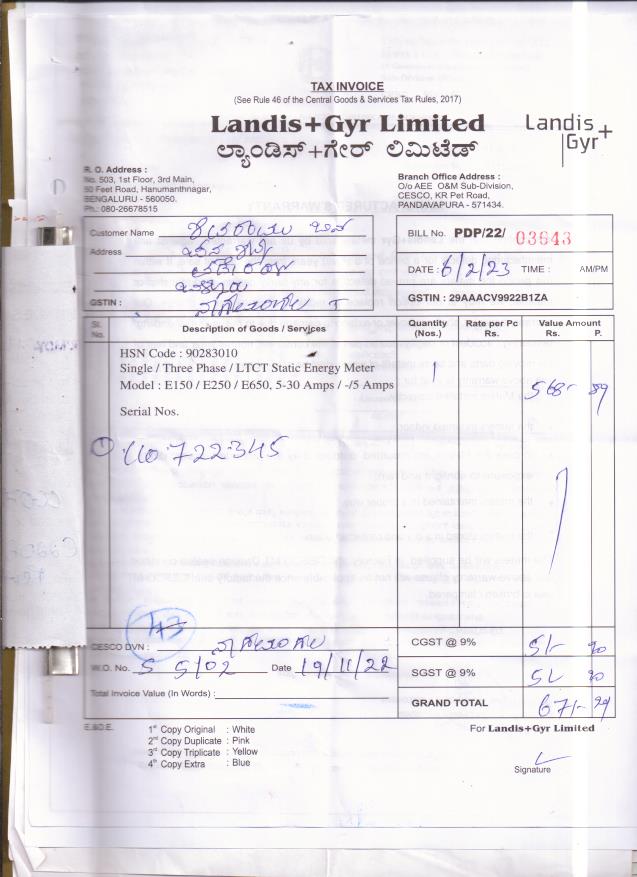 TAX INVOICE
(See Rule 46 of the Central Goods & Services Tax Rules, 2017)
Landis+Gyr Limited
ಲ್ಯಾಂಡಿಸ್+ಗೇರ್ ಲಿಮಿಟೆಡ್
Landis+
Gyr
R. O. Address :
No. 503, 1st Floor, 3rd Main,
50 Feet Road, Hanumanthnagar,
BENGALURU - 560050.
Ph.: 080-26678515
Branch Office Address :
O/o AEE O&M Sub-Division,
CESCO, KR Pet Road,
PANDAVAPURA - 571434.
Customer Name
Address
GSTIN :
BILL No. PDP/22/ 03643
DATE : 6/2/23 TIME : AM/PM
GSTIN : 29AAACV9922B1ZA
Sl. No. Description of Goods / Services Quantity (Nos.) Rate per Pc Rs. Value Amount Rs. P.
HSN Code : 90283010
Single / Three Phase / LTCT Static Energy Meter 1
Model : E150 / E250 / E650, 5-30 Amps / -/5 Amps 568/- 89
Serial Nos.
110722345
143
CESCO DVN :
W.O. No. S 5/02 Date 19/11/22
Total Invoice Value (In Words) :
CGST @ 9% 51/- 20
SGST @ 9% 51 20
GRAND TOTAL 671/- 29
E.&O.E.
1st Copy Original : White
2nd Copy Duplicate : Pink
3rd Copy Triplicate : Yellow
4th Copy Extra : Blue
For Landis+Gyr Limited
Signature